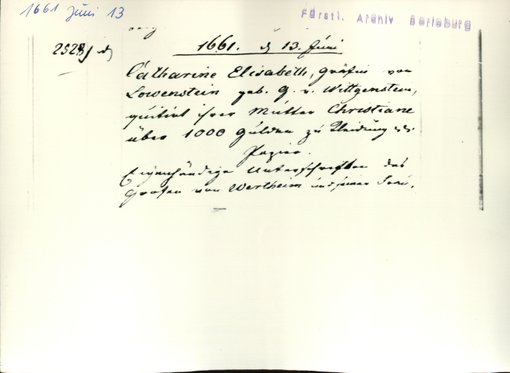 1661 Juni 13
Fürstl. Archiv Berleburg
2528
1661. d 13. Juni
Catharine Elisabeth, gräfin von
Lowenstein geb. G. v. Wittgenstein,
quitirt ihrer Mutter Christiane
über 1000 Gulden zu Kleidung
Papier.
Eigenhändige Unterschriften des
Grafen von Wertheim und seiner Frau.